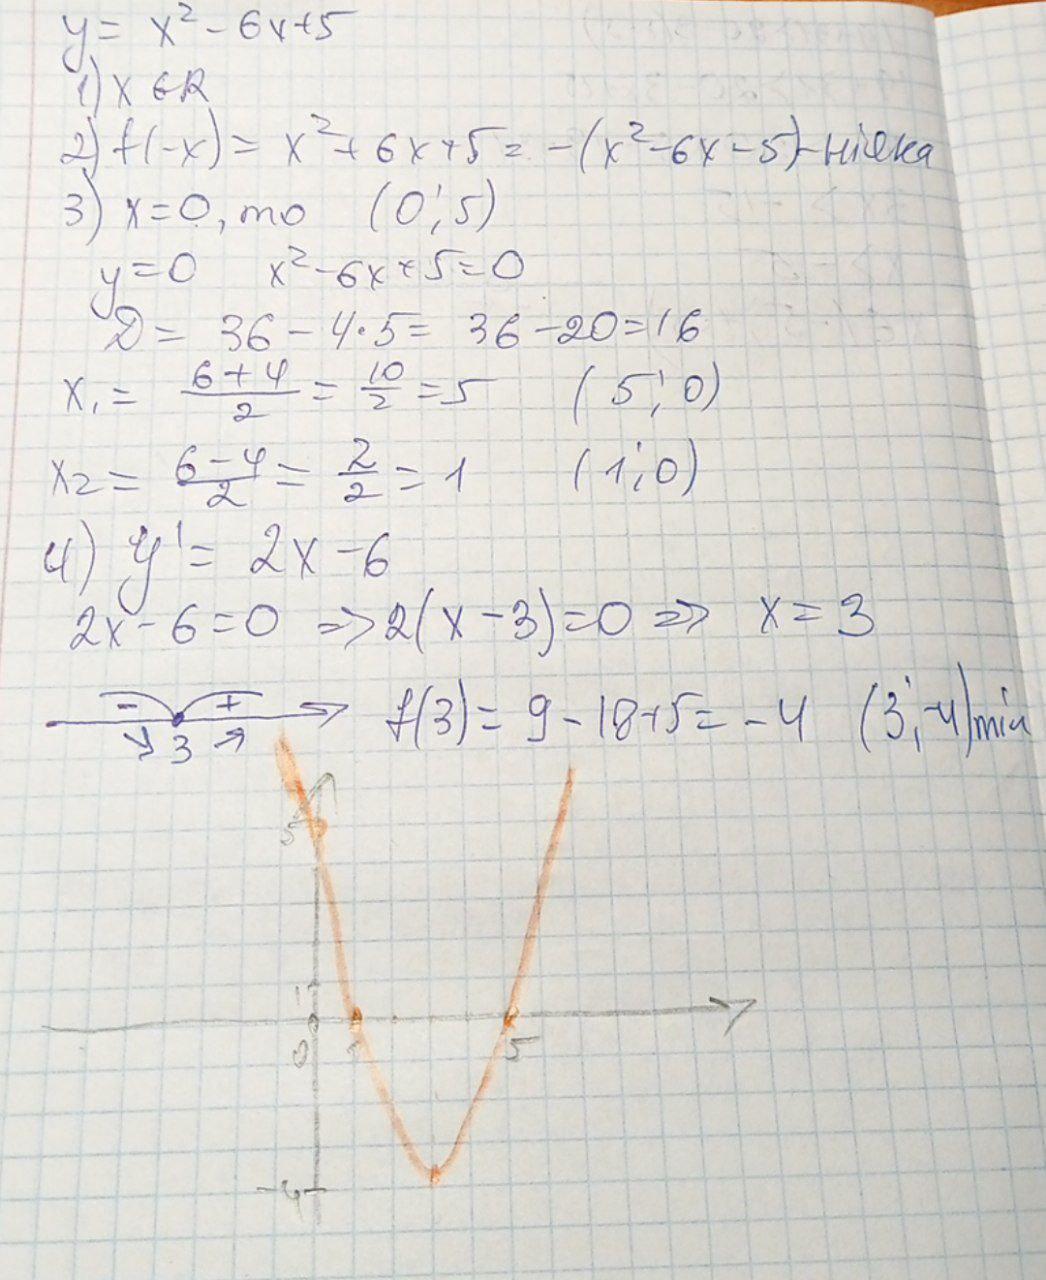 y = x² - 6x + 5
1) x ∈ R
2) f(-x) = x² + 6x + 5 = -(x² - 6x - 5) - ніяка
3) x = 0, то (0; 5)
y = 0 x² - 6x + 5 = 0
D = 36 - 4·5 = 36 - 20 = 16
x₁ = (6+4)/2 = 10/2 = 5 (5; 0)
x₂ = (6-4)/2 = 2/2 = 1 (1; 0)
4) y' = 2x - 6
2x - 6 = 0 => 2(x - 3) = 0 => x = 3
- + f(3) = 9 - 18 + 5 = -4 (3; -4) min
↘ 3 ↗
5
1
0 1 5
-4